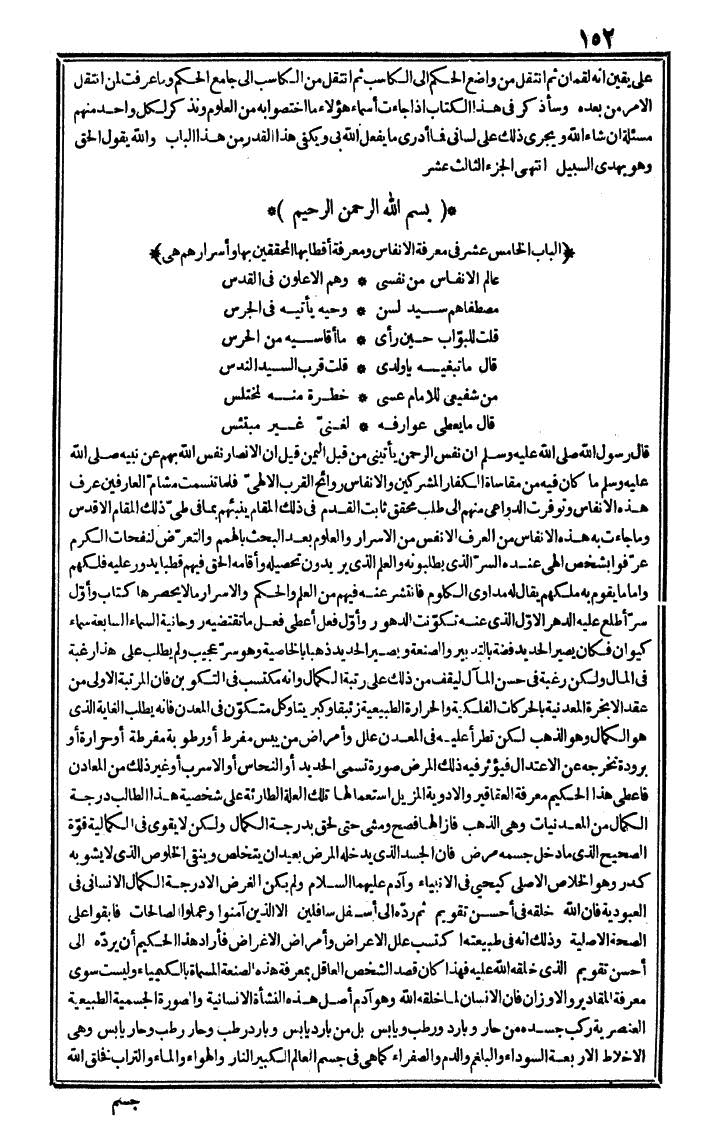 ١٥٢
على يقين انه لقمان ثم انتقل من واضع الحكم الى الكاسب ثم انتقل من الكاسب الى جامع الحكم وما عرفت لمن انتقل
الامر من بعده وسأذكر فى هذا الكتاب اذا جاءت أسماء هؤلاء ما اختصوا به من العلوم ونذكر لكل واحد منهم
مسئلة ان شاء الله ويجرى ذلك على لسانى فما أدرى ما يفعل الله بى ويكفى هذا القدر من هذا الباب والله يقول الحق
وهو يهدى السبيل انتهى الجزء الثالث عشر
*( بسم الله الرحمن الرحيم )*
﴿الباب الخامس عشر فى معرفة الانفاس ومعرفة أقطابها المحققين بها وأسرارهم هى﴾
عالم الانفاس من نفسى * وهم الاعلون فى القدس
مصطفاهم سيد لسن * وحيه يأتيه فى الجرس
قلت للبوّاب حين رأى * ما أقاسيه من الحرس
قال ما تبغيه يا ولدى * قلت قرب السيد الندس
من شفيعى للامام عسى * خطرة منه لمختلس
قال ما يعطى عوارفه * لغنىّ غير مبتئس
قال رسول الله صلى الله عليه وسلم ان نفس الرحمن يأتينى من قبل اليمن قيل ان الانصار نفس الله بهم عن نبيه صلى الله
عليه وسلم ما كان فيه من مقاساة الكفار المشركين والانفاس روائح القرب الالهىّ فلما تنسمت مشامّ العارفين عرف
هذه الانفاس وتوفرت الدواعى منهم الى طلب محقق ثابت القدم فى ذلك المقام ينبئهم بما فى طىّ ذلك المقام الاقدس
وما جاءت به هذه الانفاس من العرف الانفس من الاسرار والعلوم بعد البحث بالهمم والتعرّض لنفحات الكرم
عرّفوا بشخص الهى عنده السرّ الذى يطلبونه والعلم الذى يريدون تحصيله وأقامه الحق فيهم قطبا يدور عليه فلكهم
واماما يقوم به ملكهم يقال له مداوى الكلوم فانتشر عنه فيهم من العلم والحكم والاسرار ما لا يحصرها كتاب وأوّل
سرّ أطلع عليه الدهر الاوّل الذى عنه تكوّنت الدهور وأوّل فعل أعطى فعل ما تقتضيه روحانية السماء السابعة سماء
كيوان فكان يصير الحديد فضة بالتدبير والصنعة ويصير الحديد ذهبا بالخاصية وهو سرّ عجيب ولم يطلب على هذا رغبة
فى المال ولكن رغبة فى حسن المآل ليقف من ذلك على رتبة الكمال وانه مكتسب فى التكوين فان المرتبة الاولى من
عقد الابخرة المعدنية بالحركات الفلكية والحرارة الطبيعية زئبقا وكبريتا وكل متكوّن فى المعدن فانه يطلب الغاية الذى
هو الكمال وهو الذهب لكن تطرأ عليه فى المعدن علل وأمراض من يبس مفرط أو رطوبة مفرطة أو حرارة أو
برودة تخرجه عن الاعتدال فيؤثر فيه ذلك المرض صورة تسمى الحديد أو النحاس أو الاسرب أو غير ذلك من المعادن
فأعطى هذا الحكيم معرفة العقاقير والادوية المزيل استعمالها تلك العلة الطارئة على شخصية هذا الطالب درجة
الكمال من المعدنيات وهى الذهب فازالها فصح ومشى حتى لحق بدرجة الكمال ولكن لا يقوى فى الكمالية قوّة
الصحيح الذى ما دخل جسمه مرض فان الجسد الذى يدخله المرض بعيد ان يتخلص وينقى الخلوص الذى لا يشوبه
كدر وهو الخلاص الاصلى كيحيى فى الانبياء وآدم عليهما السلام ولم يكن الغرض الا درجة الكمال الانسانى فى
العبودية فان الله خلقه فى أحسن تقويم ثم ردّه الى أسفل سافلين الا الذين آمنوا وعملوا الصالحات فابقوا على
الصحة الاصلية وذلك انه فى طبيعته اكتسب علل الاعراض وأمراض الاغراض فأراد هذا الحكيم أن يردّه الى
أحسن تقويم الذى خلقه الله عليه فهذا كان قصد الشخص العاقل بمعرفة هذه الصنعة المسماة بالكيمياء وليست سوى
معرفة المقادير والاوزان فان الانسان لما خلقه الله وهو آدم أصل هذه النشأة الانسانية والصورة الجسمية الطبيعية
العنصرية ركب جسده من حار وبارد ورطب ويابس بل من بارد يابس وبارد رطب وحار رطب وحار يابس وهى
الاخلاط الاربعة السوداء والبلغم والدم والصفراء كما هى فى جسم العالم الكبير النار والهواء والماء والتراب فخلق الله
جسم